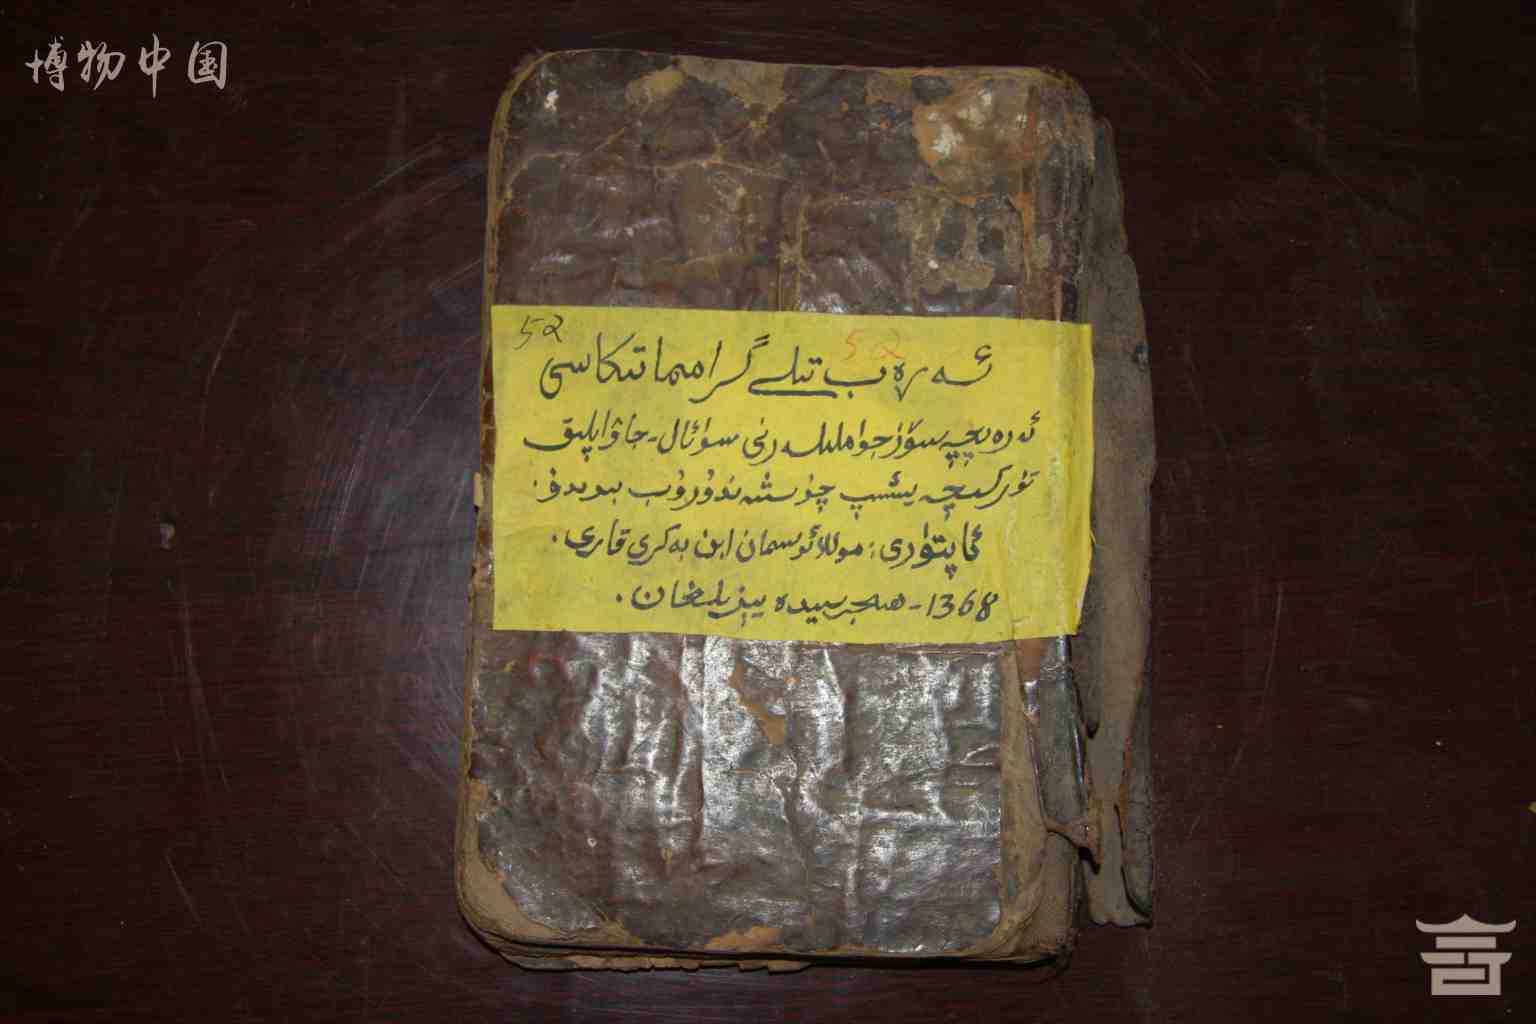 博物中国
52
52
ئەرەب تىلى گرامماتىكاسى
ئەرەبچە سۆز جۈملىلەرنى سوئال-جاۋاپلىق
تۈركىچە يېشىپ چۈشەندۈرۈپ بېرىدۇ.
ئاپتورى: موللا ئوسمان ابن بەكرى قارى.
1368-ھىجرىيىدە يېزىلغان.